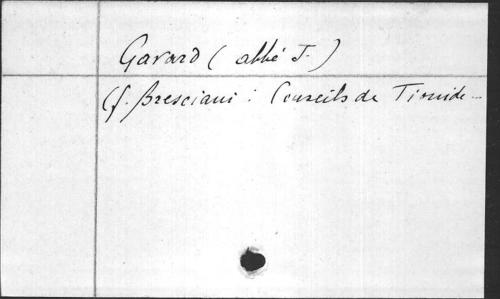 Gavard (abbé J.)
Cf. Bresciani : Conseils de Tionide_